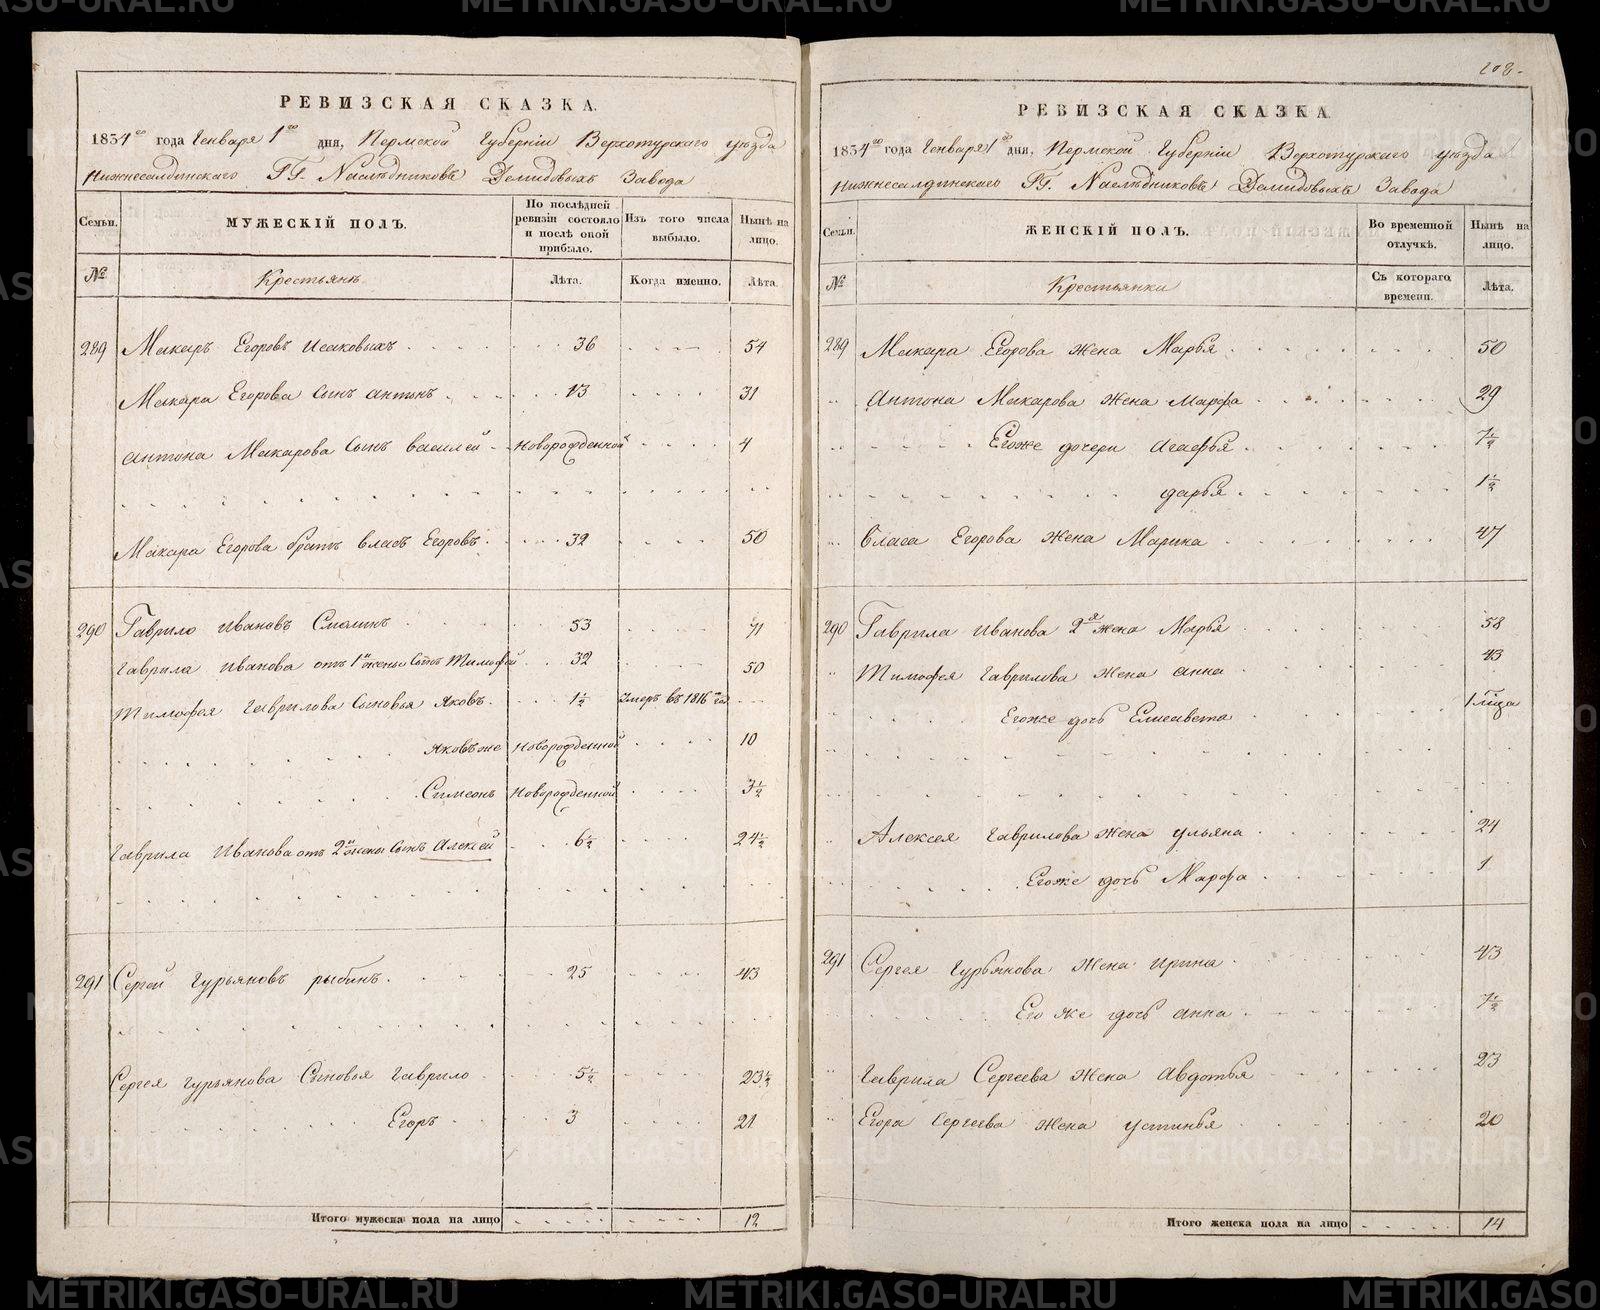 РЕВИЗСКАЯ СКАЗКА.
1834го года Генваря 1го дня, Пермской Губернiи Верхотурскаго уѣзда
Нижнесалдинскаго ГГ. Наслѣдниковъ Демидовыхъ Завода
Семьи. МУЖЕСКIЙ ПОЛЪ. По послѣдней ревизiи состояло и послѣ оной прибыло. Изъ того числа выбыло. Нынѣ на лицо.
№ Крестьянъ Лѣта. Когда именно. Лѣта.
289 Макаръ Егоровъ Исаковыхъ 36 54
Макара Егорова сынъ антонъ 13 31
антона Макарова сынъ василей Новорожденной 4
Макара Егорова братъ власъ Егоровъ 32 50
290 Гаврило Ивановъ Смолинъ 53 71
Гаврила Иванова отъ 1й жены сынъ Тимофей 32 50
Тимофея Гаврилова сыновья Яковъ 1½ Умеръ въ 1816 год
Яковъ же Новорожденной 10
Симеонъ Новорожденной 3½
Гаврила Иванова отъ 2й жены сынъ Алексей 6½ 24½
291 Сергей Гурьяновъ рыбинъ 25 43
Сергея Гурьянова Сыновья Гаврило 5½ 23½
Егоръ 3 21
Итого мужеска пола на лицо 12
208.
РЕВИЗСКАЯ СКАЗКА
1834го года Генваря 1го дня, Пермской Губернiи Верхотурскаго уѣзда
Нижнесалдинскаго ГГ. Наслѣдниковъ Демидовыхъ Завода
Семьи. ЖЕНСКIЙ ПОЛЪ. Во временной отлучкѣ. Нынѣ на лицо.
№ Крестьянки Съ котораго времени. Лѣта.
289 Макара Егорова жена Марья 50
Антона Макарова жена Марфа 29
Егоже дочери Агафья 7½
дарья 1½
Власа Егорова жена Марина 47
290 Гаврила Иванова 2я жена Марья 58
Тимофея Гаврилова жена анна 43
Егоже дочь Елисавета
Алексея Гаврилова жена ульяна 24
Егоже дочь Марфа 1
291 Сергея Гурьянова жена ирина 43
Его же дочь анна 7½
Гаврила Сергеева жена Авдотья 23
Егора Сергеева жена устинья 20
Итого женска пола на лицо 14
METRIKI.GASO-URAL.RU